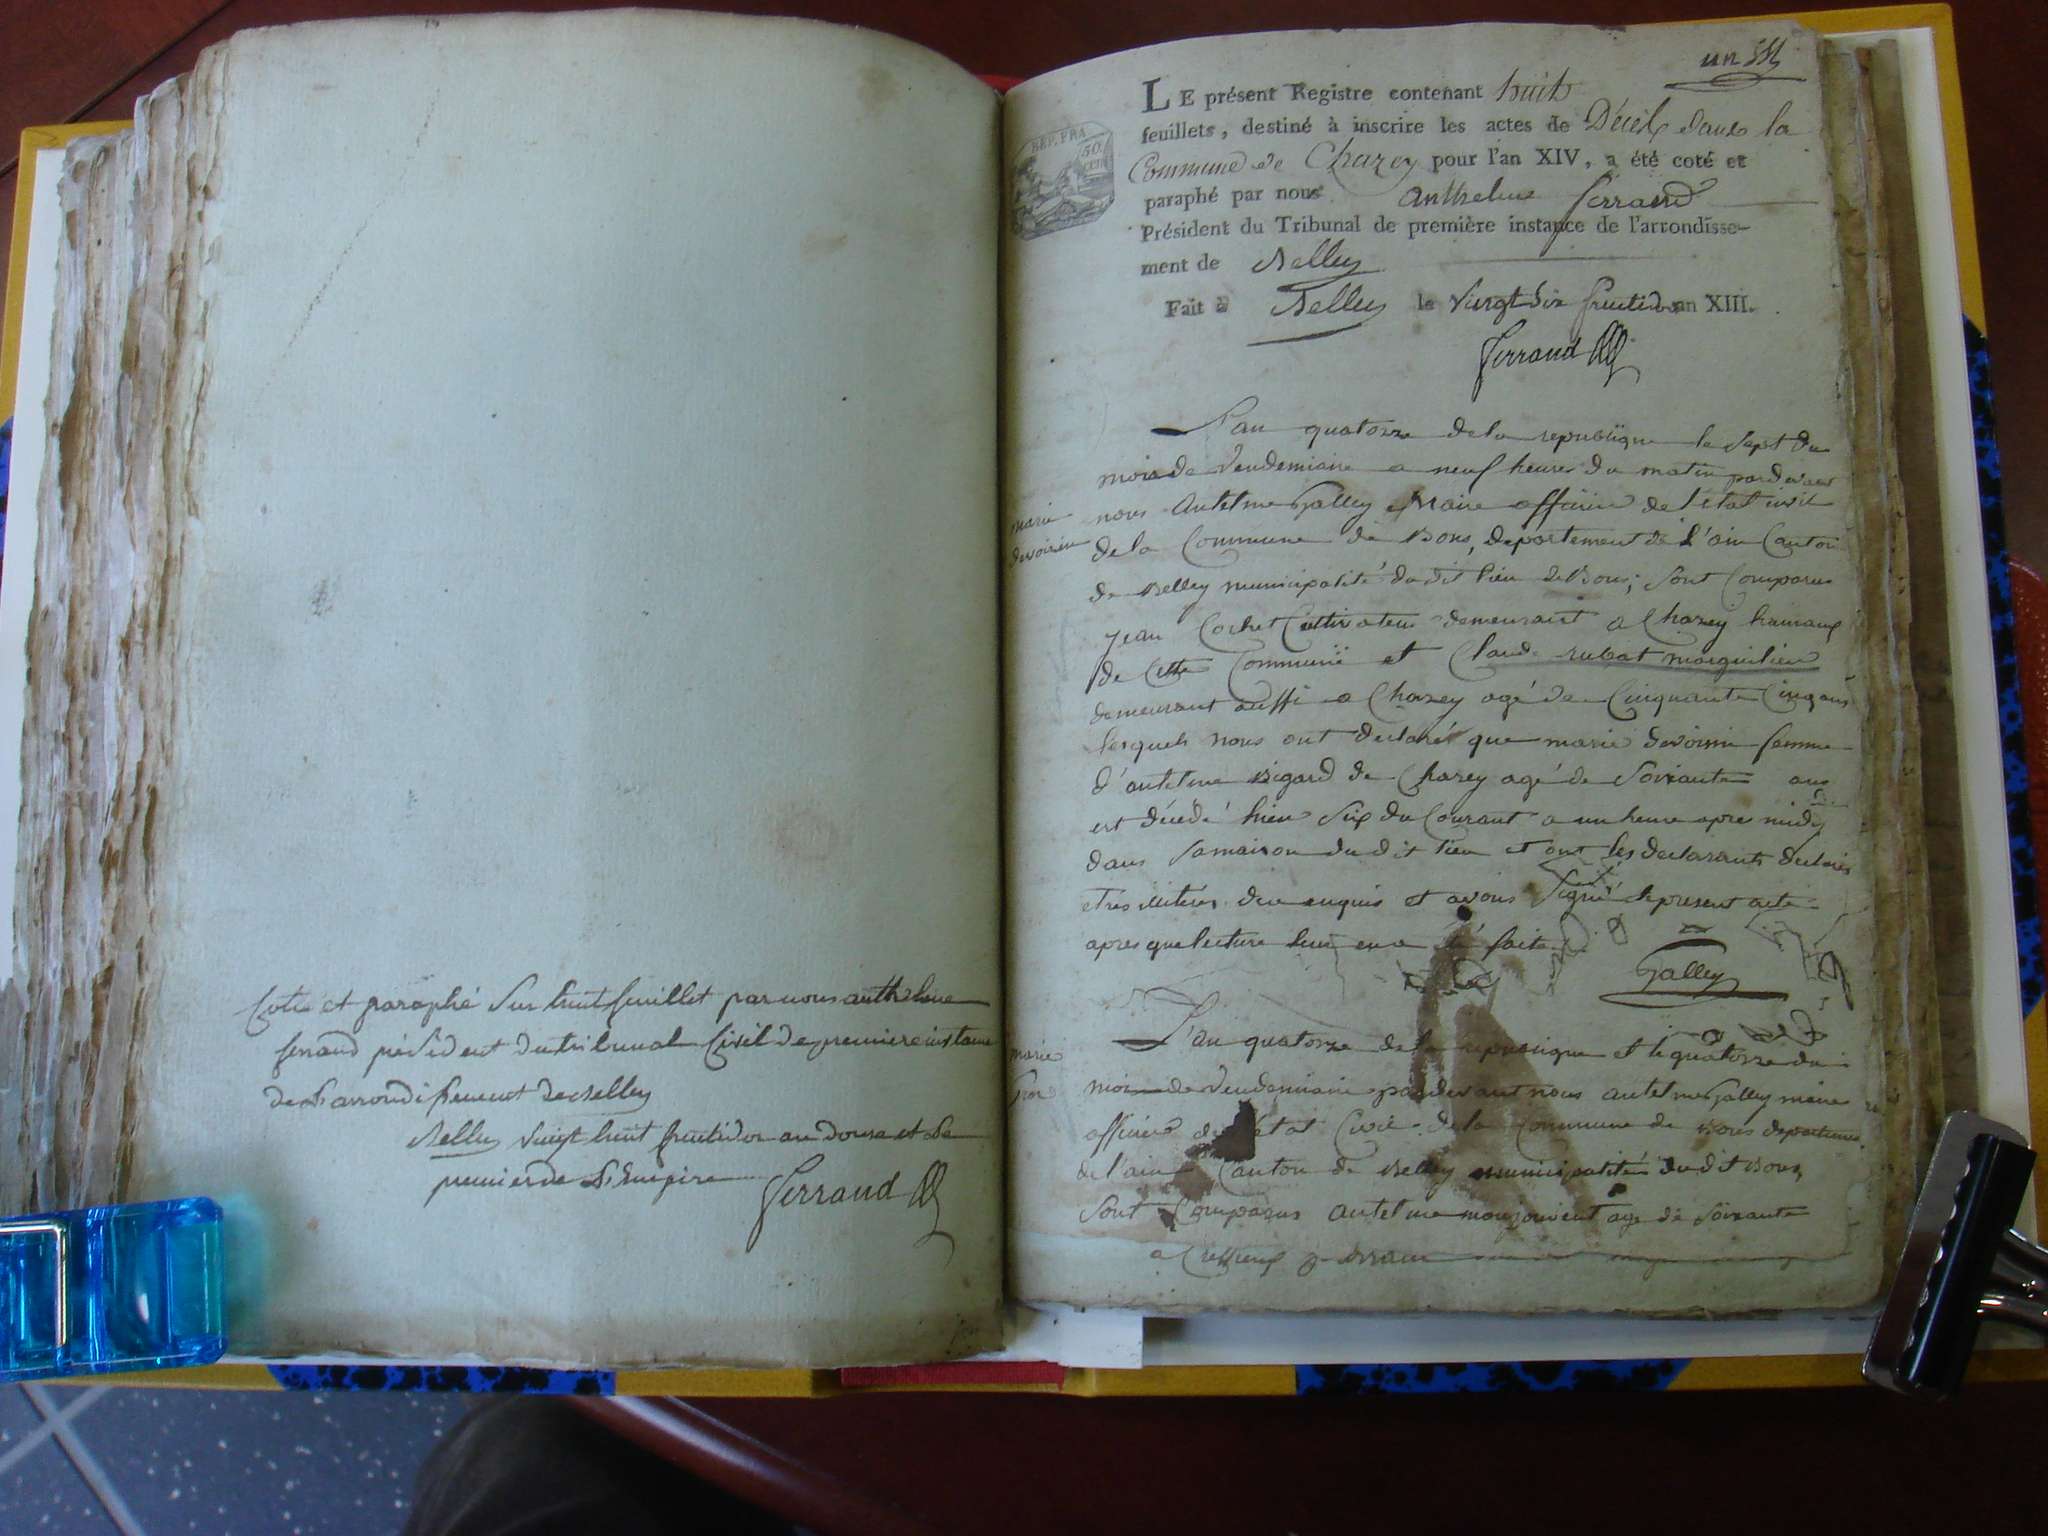 Cotté et paraphé Sur huit feuillet par nous anthelme
ferrand président du tribunal Civil de premiere instance
de L'arrondissement de Belley
Belley vingt huit fructidor an douze et le
premier de L'Empire
ferrand
un
REP. FRA
50
CENT
LE présent Registre contenant huit
feuillets, destiné à inscrire les actes de Décès dans la
Commune de Chazey pour l'an XIV, a été coté et
paraphé par nous anthelme ferrand
Président du Tribunal de première instance de l'arrondisse-
ment de Belley
Fait à Belley le vingt six fructidor an XIII.
ferrand
L'an quatorze de la republique le Sept du
mois de Vendemiaire a neuf heures du matin pardevant
nous Antelme Galley Maire officier de l'etat civil
marie
devoisin
de la Commune de Bons, departement de l'ain Canton
de Belley municipalité du dit lieu de Bons; Sont Comparus
Jean Cochet Cultivateur demeurant a Chazey hameaux
de Cette Commune et Claude rubat marguilier
demeurant aussi a Chazey agé de Cinquante Cinq ans
lesquels nous ont declaré que marie devoisin femme
d'antelme Bigard de Chazey agé de Soixante ans
est décédé hier Six du Courant a un heure apres midy
dans Samaison du dit lieu et ont les declarants declarés
etres illiteres de ce enquis et avons Signé le present acte
apres que lecture leur en a été faite
Galley
L'an quatorze de la republique et le quatorze du
marie
mois de Vendemiaire pardevant nous antelme Galley maire
officier de l'état Civil de la Commune de Bons departement
de l'ain Canton de Belley municipalités du dit Bons,
Sont Comparus Antelme monjouvent agé de Soixante
a